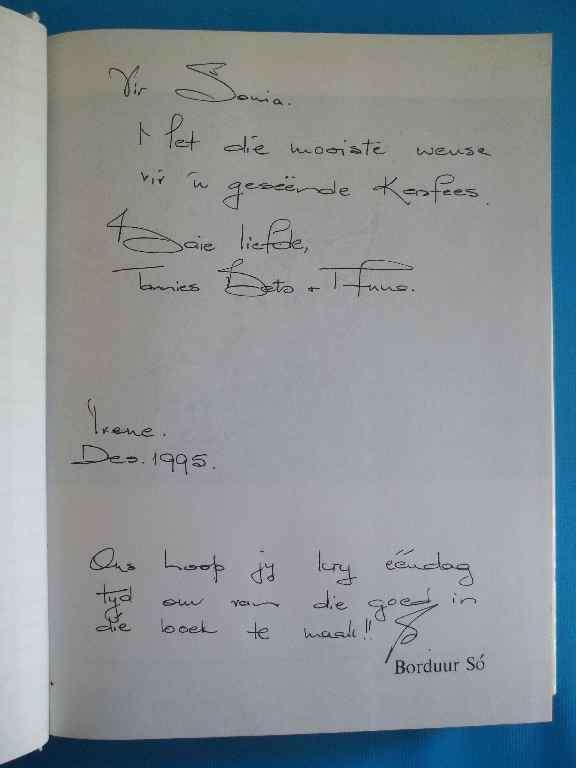 Vir Sonia.
Met die mooiste wense
vir 'n geseënde Kersfees.
Baie liefde,
Tannies Bets +
Irene.
Des. 1995.
Ons hoop jy kry ééndag
tyd om van die goed in
die boek te maak!!
Borduur Só